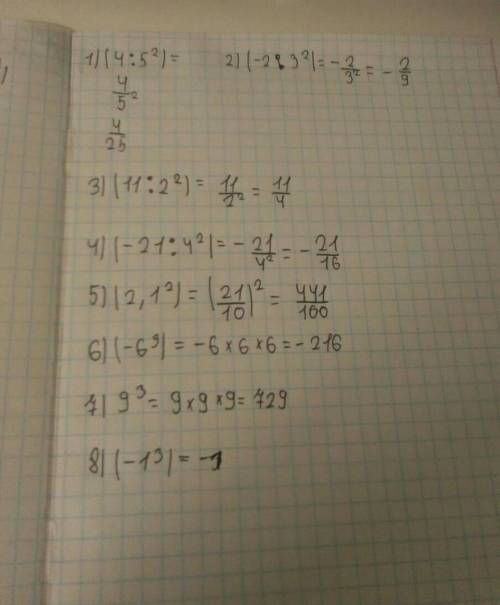 1) (4:5²)=
4/5²
4/25
2) (-2:3²)=-2/3²=-2/9
3) (11:2²)=11/2²=11/4
4) (-21:4²)=-21/4²=-21/16
5) (2,1²)=(21/10)²=441/100
6) (-6³)=-6×6×6=-216
7) 9³=9×9×9=729
8) (-1³)=-1